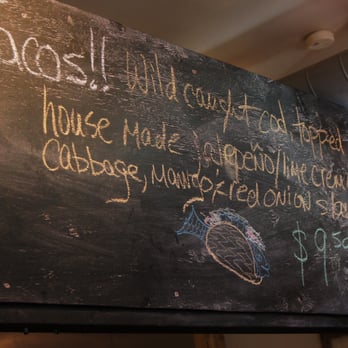 acos!! Wild caught cod, topped
house made jalepeño/lime crem
Cabbage, mango, & red onion sla
$9.50